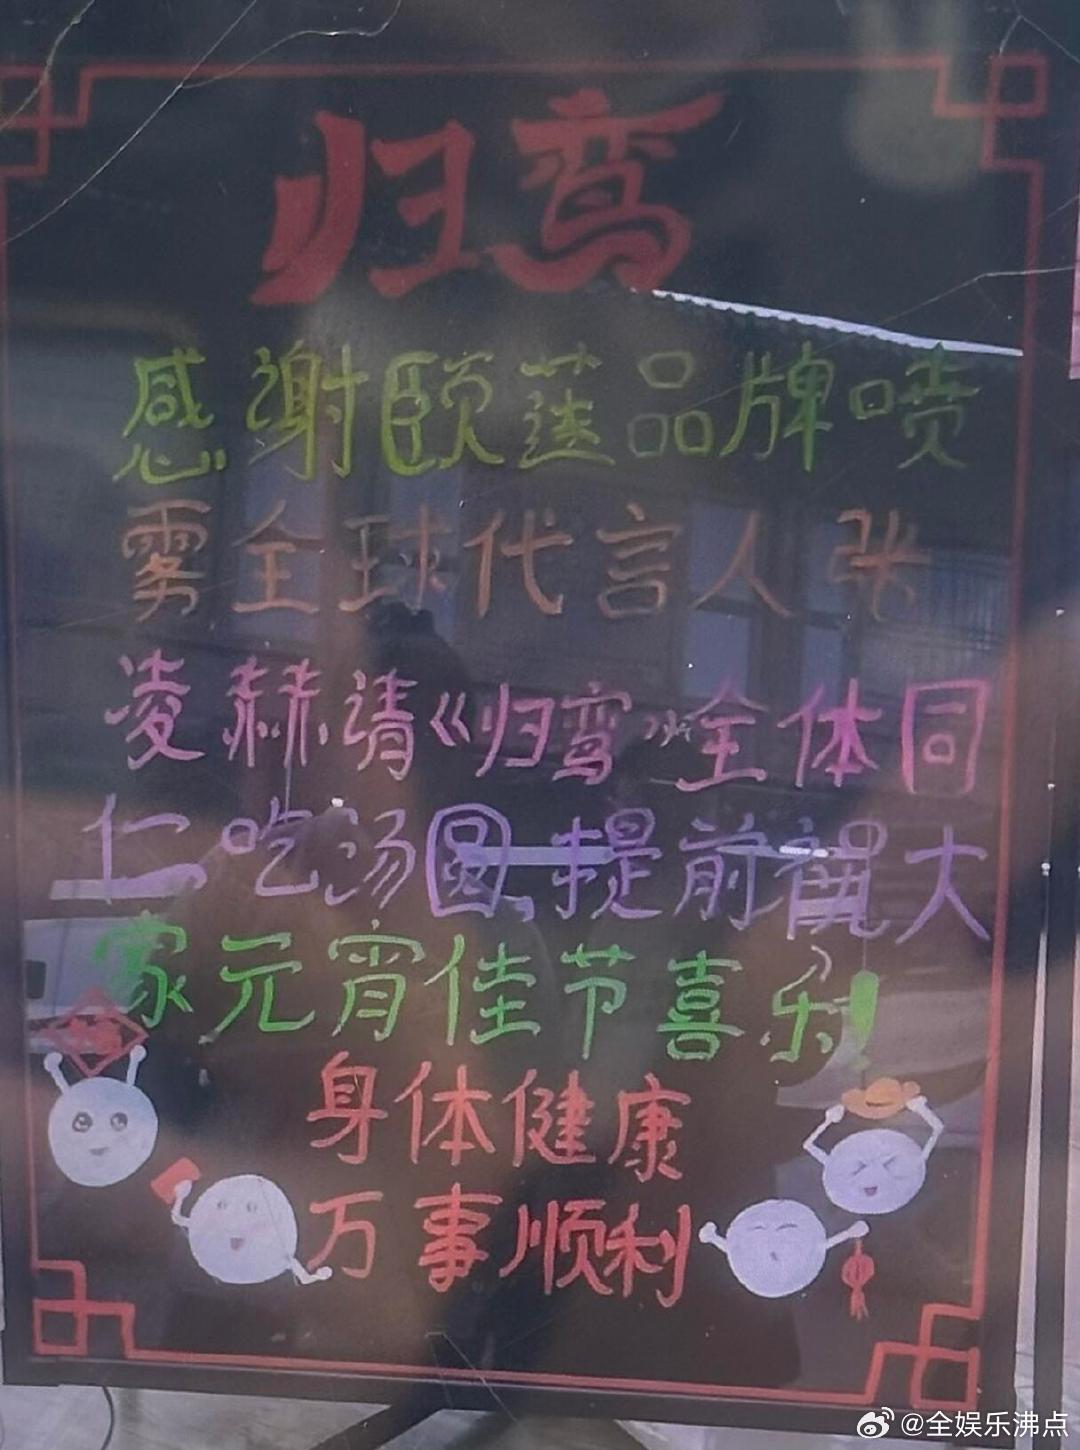 归鸾
感谢颐莲品牌喷
雾全球代言人张
凌赫请《归鸾》全体同
仁吃汤圆,提前祝大
家元宵佳节喜乐!
身体健康
万事顺利
@全娱乐沸点